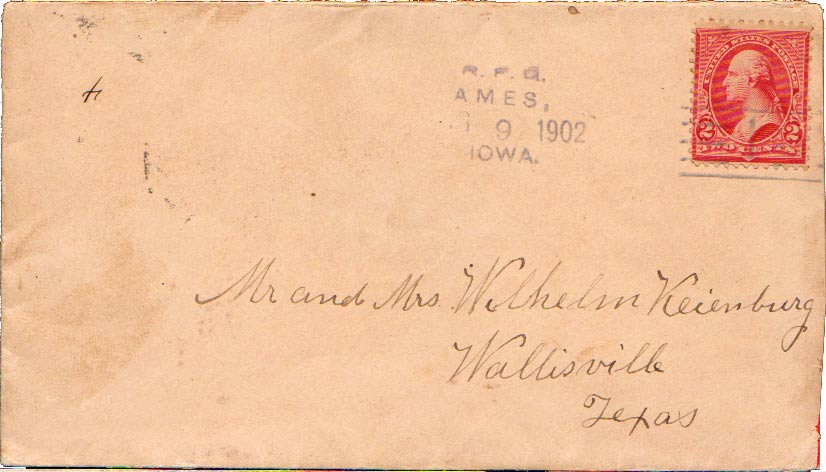 R. F. D.
AMES,
9 1902
IOWA.
UNITED STATES POSTAGE
2 2
TWO CENTS
4
Mr and Mrs. Wilhelm Keienburg
Wallisville
Texas